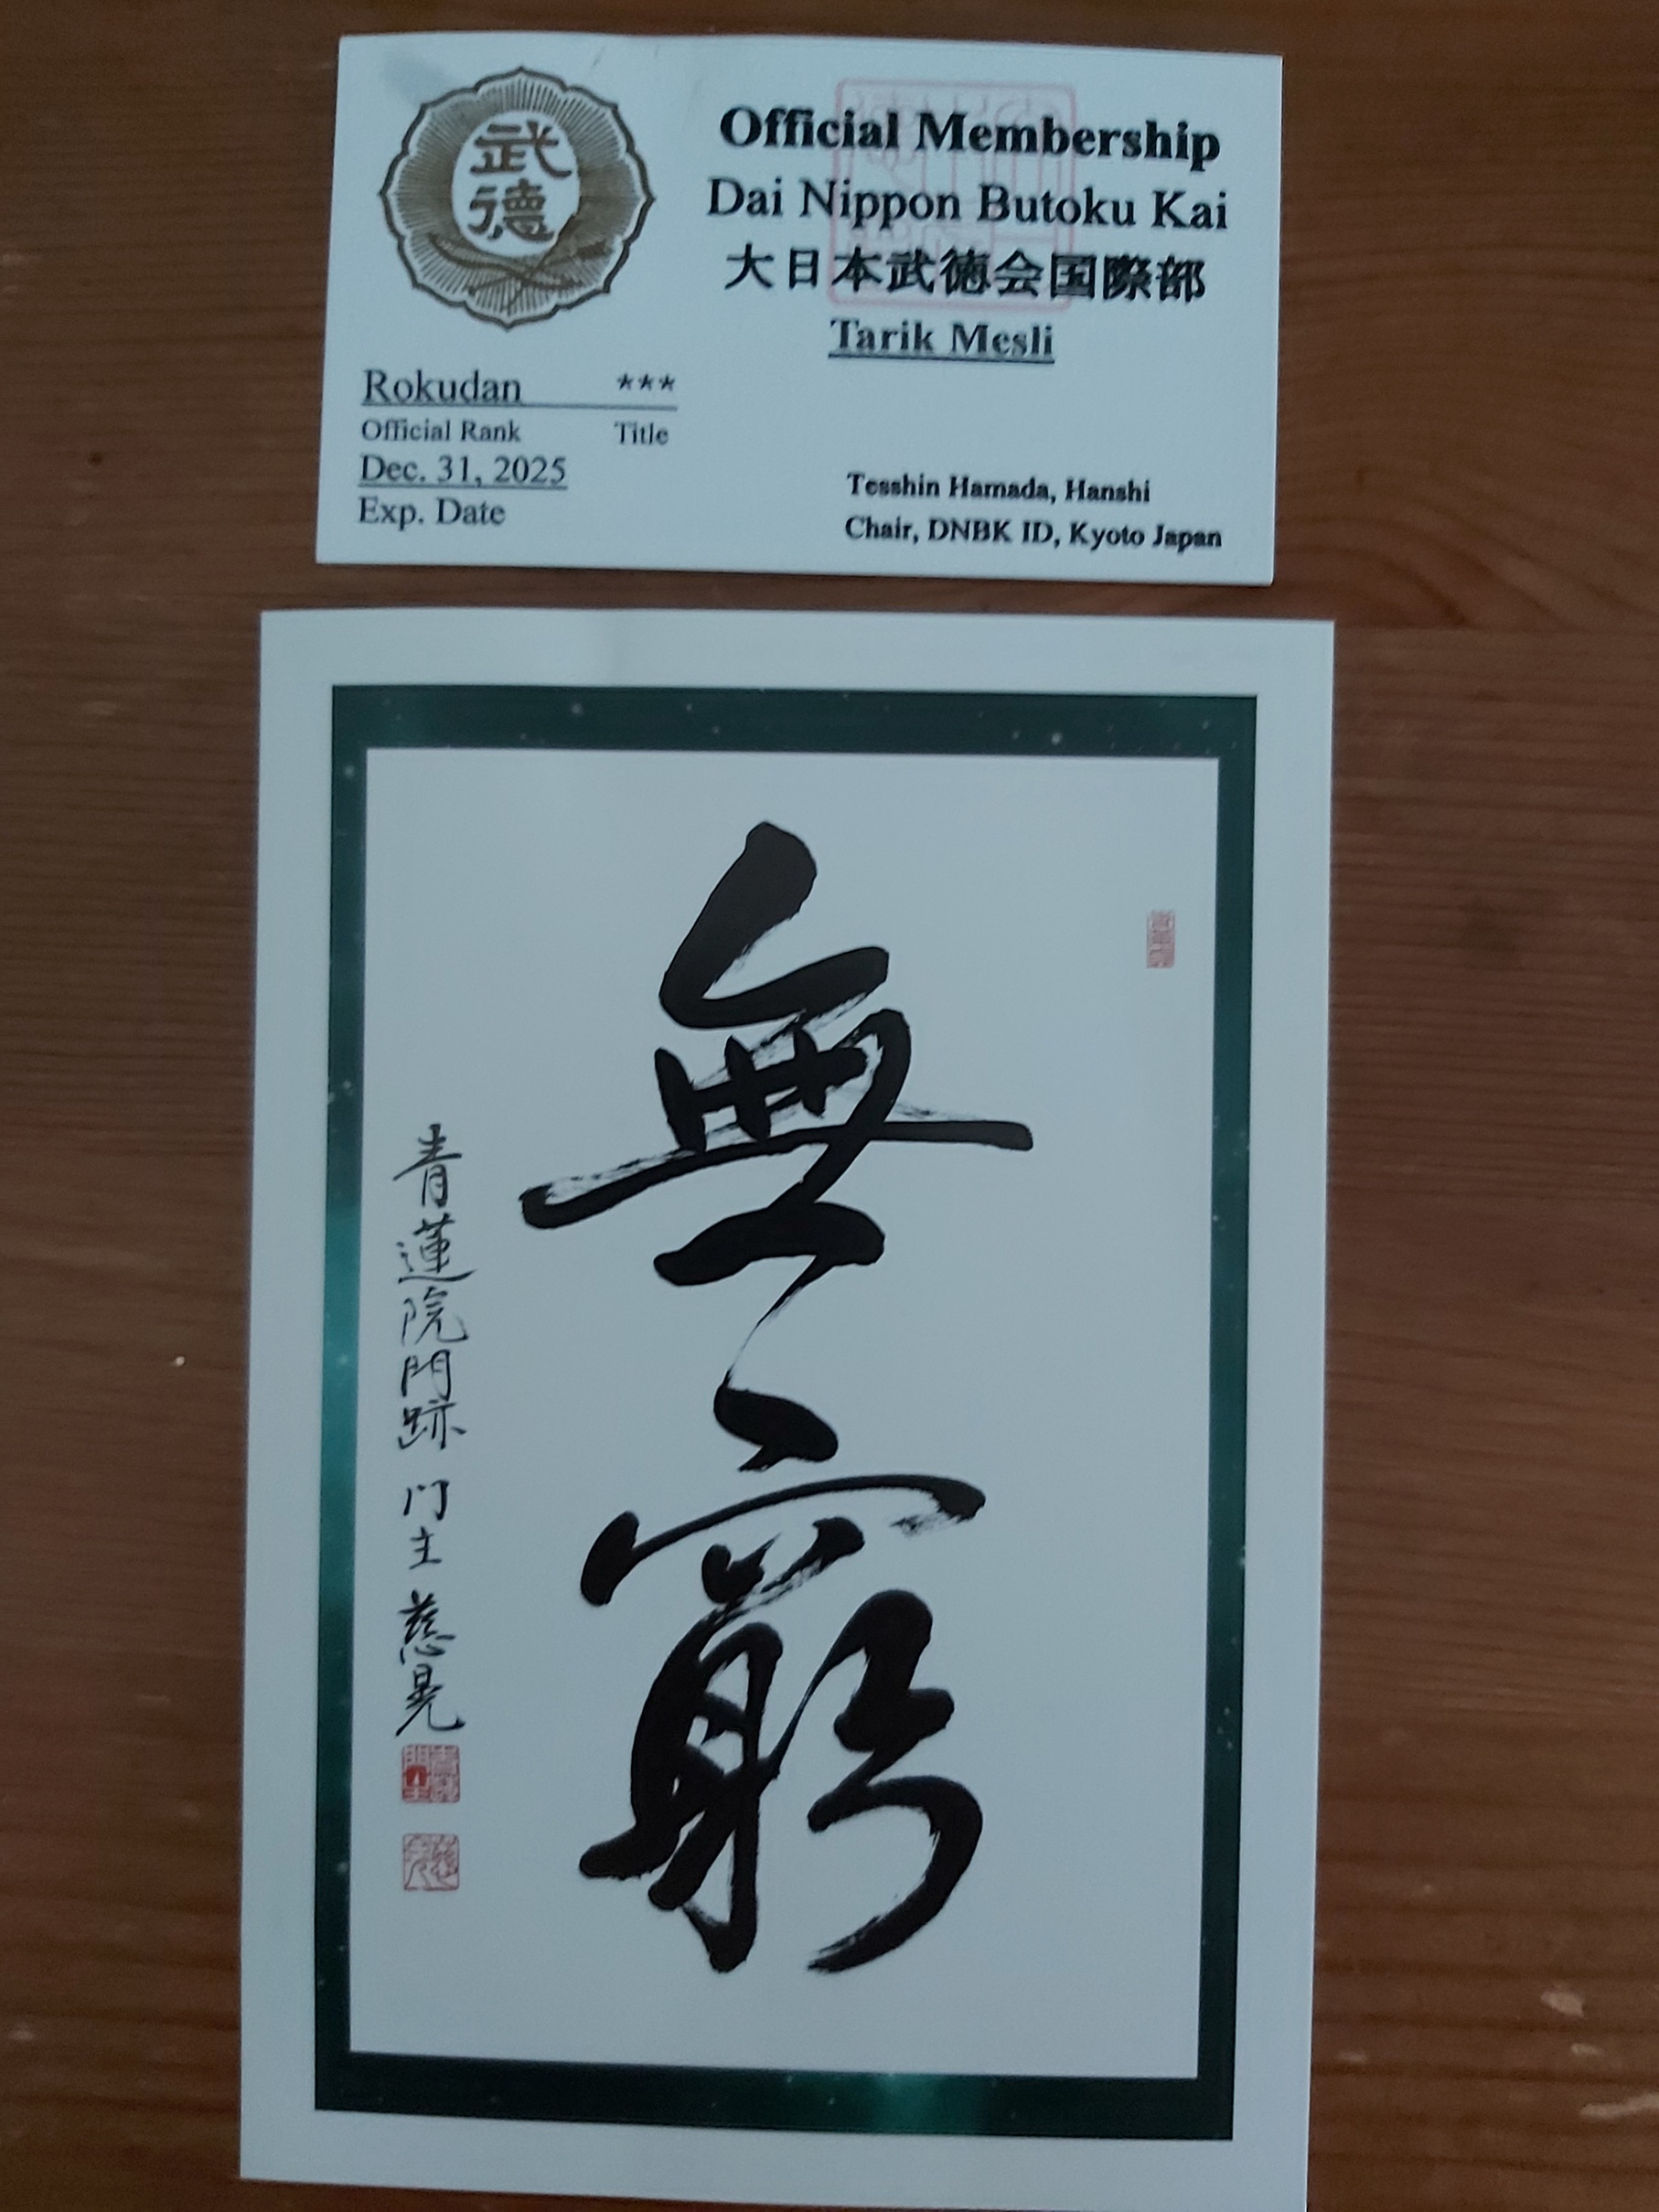 武
徳
Official Membership
Dai Nippon Butoku Kai
大日本武徳会国際部
Tarik Mesli
Rokudan ***
Official Rank Title
Dec. 31, 2025
Exp. Date
Tesshin Hamada, Hanshi
Chair, DNBK ID, Kyoto Japan
無窮
青蓮院門跡 门主 慈晃